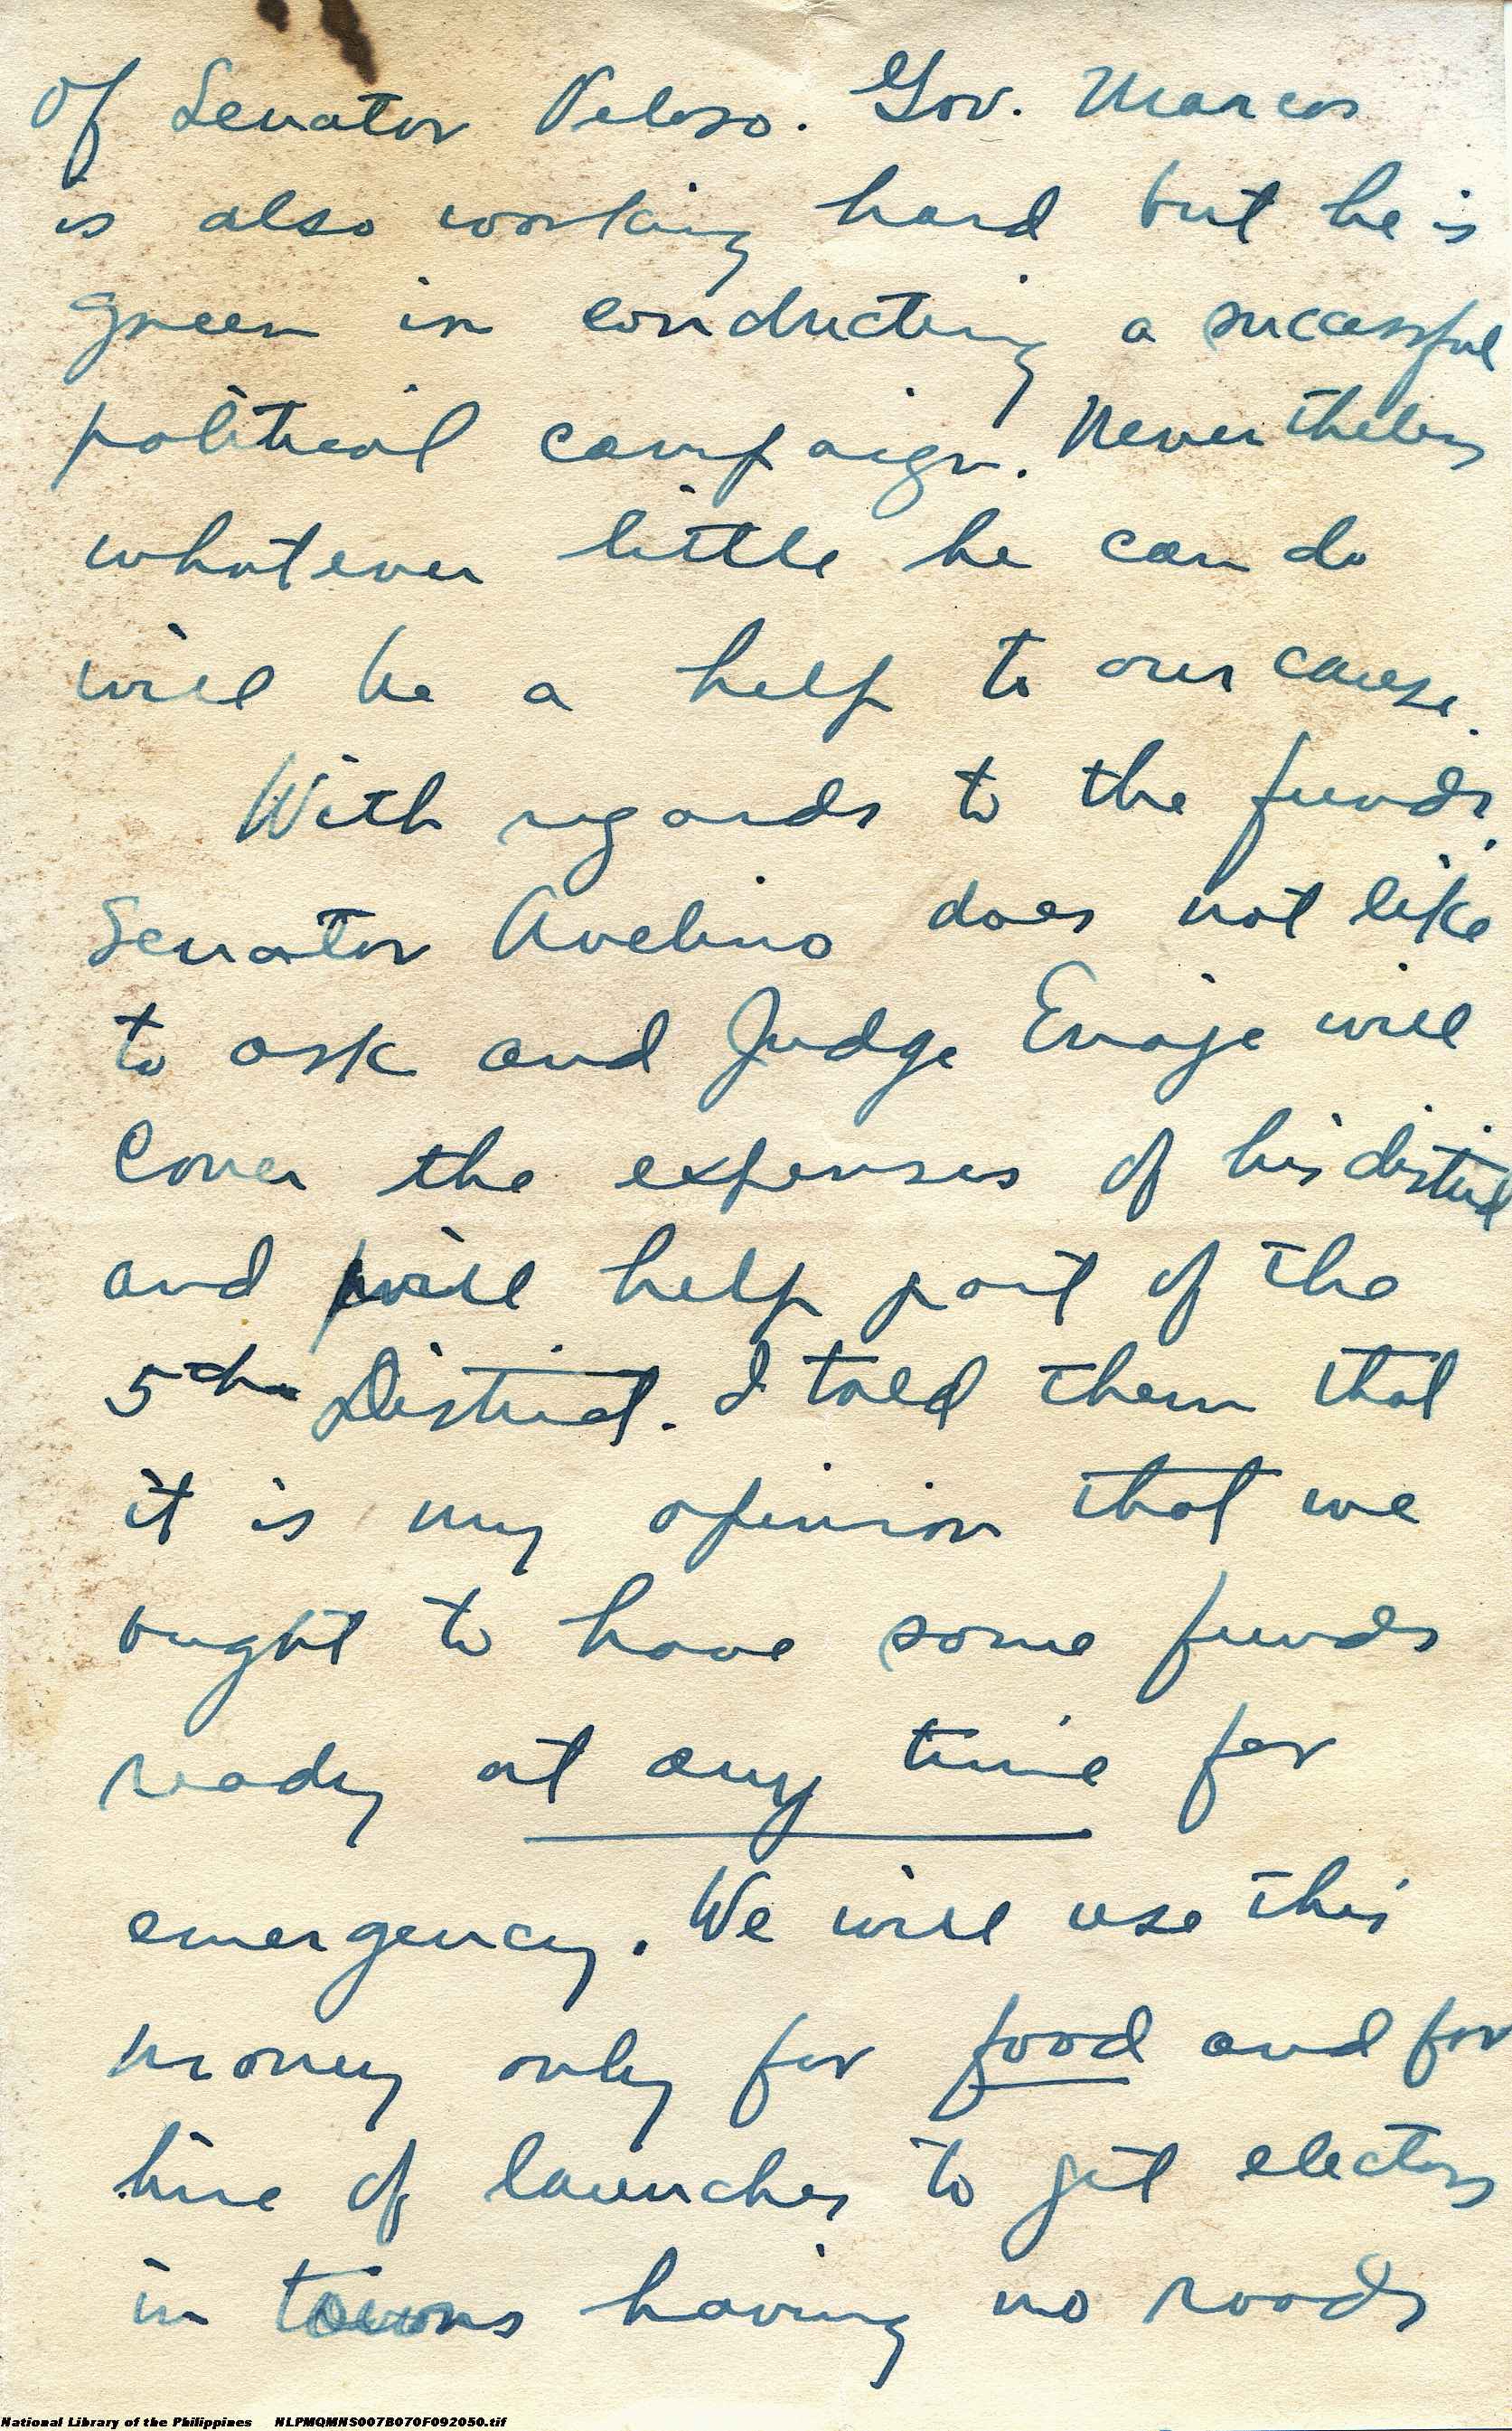 of Senator Veloso. Gov. Marcos
is also working hard but he is
green in conducting a successful
political campaign. Nevertheless
whatever little he can do
will be a help to our cause.
With regards to the funds,
Senator Avelino does not like
to ask and Judge Enaje will
cover the expenses of his district
and will help part of the
5th District. I told them that
it is my opinion that we
ought to have some funds
ready at any time for
emergency. We will use this
money only for food and for
hire of launches to get electors
in towns having no roads
National Library of the Philippines NLPMQMNS007B070F092050.tif